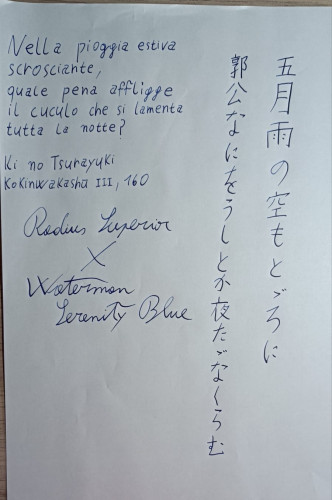 Nella pioggia estiva
scrosciante,
quale pena affligge
il cuculo che si lamenta
tutta la notte?
Ki no Tsurayuki
Kokinwakashū III, 160
Radius Superior
X
Waterman
Serenity Blue
五月雨の空もとゞろに
郭公なにをうしとか夜たゞなくらむ